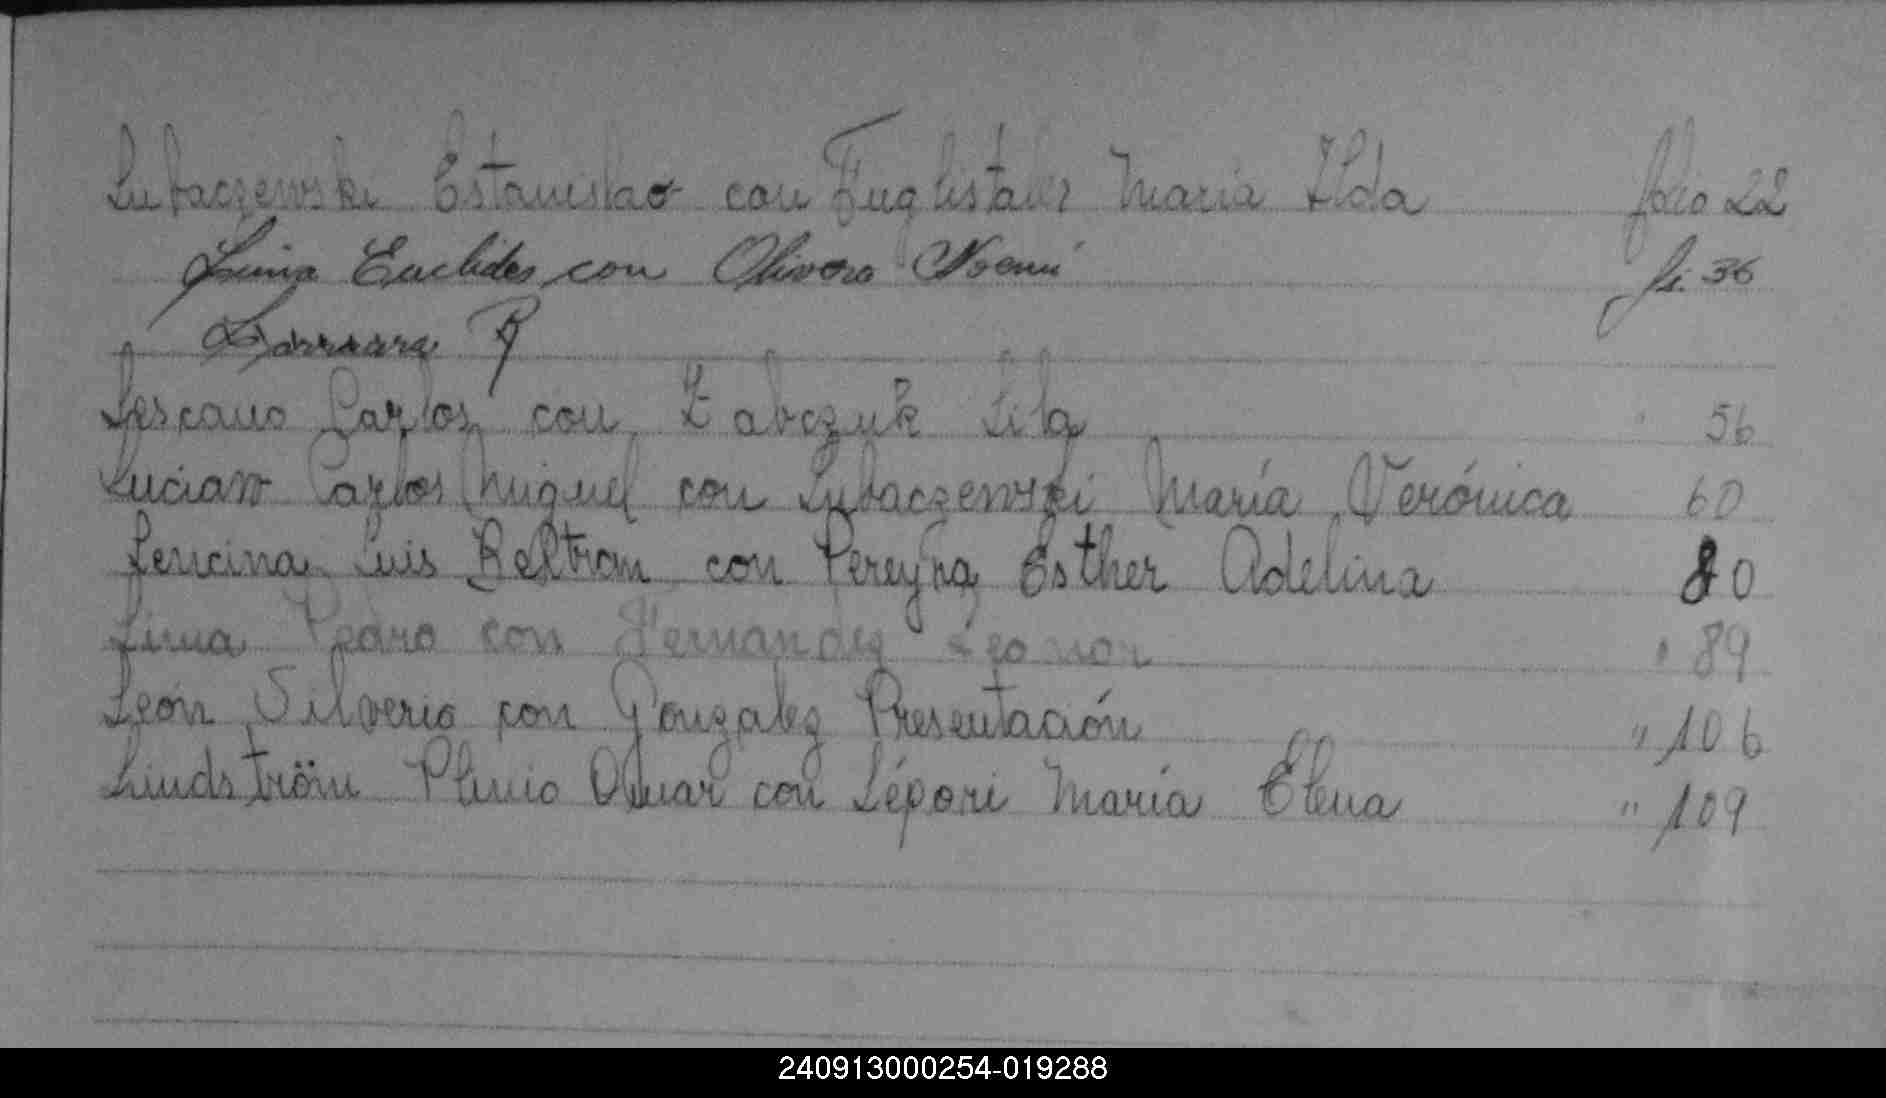 Lubaczewski Estanislao con Fuglistaler Maria Ilda folio 22
Luna Euclides con Olivera Noemi fs. 36
Lescano Carlos con Zabczuk Lila 56
Luciano Carlos Miguel con Lubaczewski María Verónica 60
Lencina Luis Beltran con Pereyra Esther Adelina 80
Lima Pedro con Fernandez Leonor " 89
León Silverio con Gonzalez Presentación " 106
Lindströn Plinio Omar con Lépori María Elena " 109
240913000254-019288